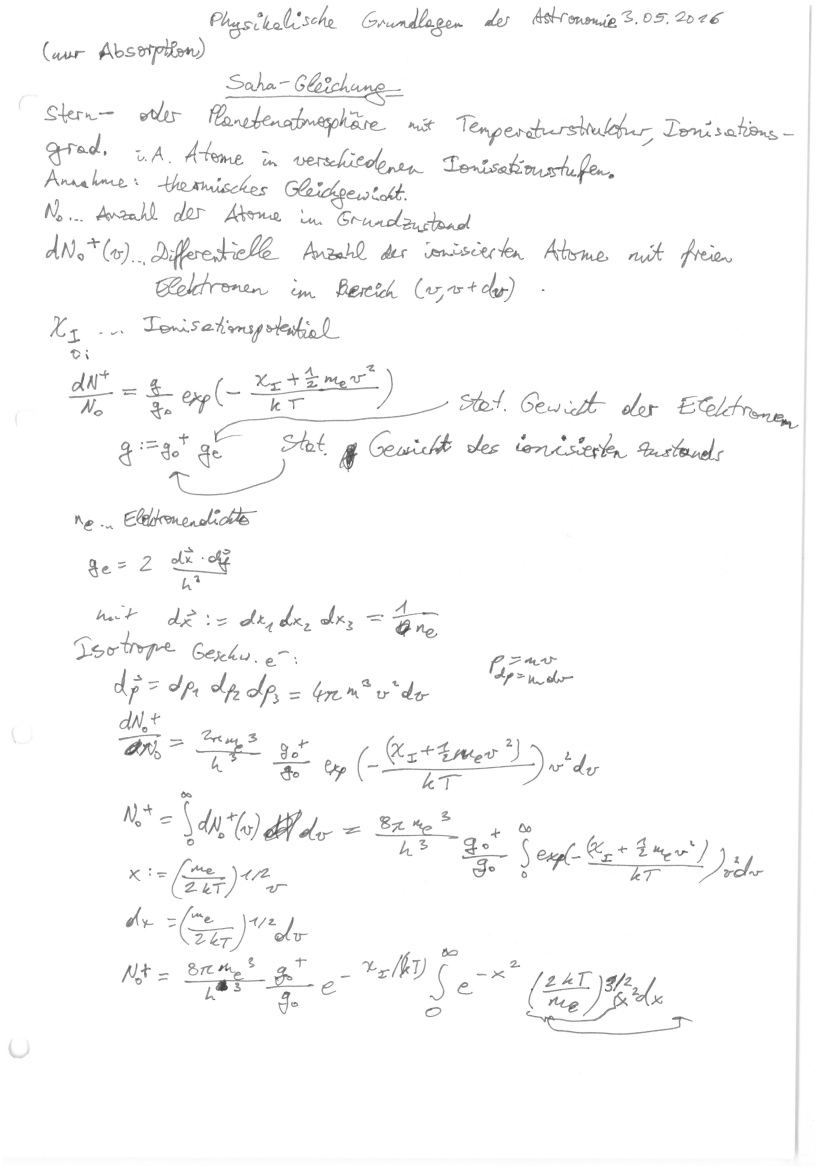 Physikalische Grundlagen der Astronomie 3.05.2016
(nur Absorption)
Saha-Gleichung
Stern- oder Planetenatmosphäre mit Temperaturstruktur, Ionisations-
grad. i.A. Atome in verschiedenen Ionisationsstufen.
Annahme: thermisches Gleichgewicht.
N₀... Anzahl der Atome im Grundzustand
dN₀⁺(v)... Differentielle Anzahl der ionisierten Atome mit freien
Elektronen im Bereich (v, v+dv).
χ_I ... Ionisationspotential
dN⁺/N₀ = g/g₀ exp(- (χ_I + ½ mₑ v²)/(kT))
stat. Gewicht der Elektronen
g := g₀⁺ gₑ stat. Gewicht des ionisierten Zustands
nₑ... Elektronendichte
gₑ = 2 (dx⃗ · dp⃗)/h³
mit dx⃗ := dx₁ dx₂ dx₃ = 1/nₑ
Isotrope Geschw. e⁻:
p = mv
dp = m dv
dp⃗ = dp₁ dp₂ dp₃ = 4π m³ v² dv
dN₀⁺/N₀ = 2π mₑ³/h³ g₀⁺/g₀ exp(- (χ_I + ½ mₑ v²)/(kT)) v² dv
N₀⁺ = ∫₀^∞ dN₀⁺(v) dv = 8π mₑ³/h³ g₀⁺/g₀ ∫₀^∞ exp(- (χ_I + ½ mₑ v²)/(kT)) v² dv
x := (mₑ/(2kT))^1/2 v
dx = (mₑ/(2kT))^1/2 dv
N₀⁺ = 8π mₑ³/h³ g₀⁺/g₀ e^(-χ_I/(kT)) ∫₀^∞ e^(-x²) (2kT/mₑ)^3/2 x² dx